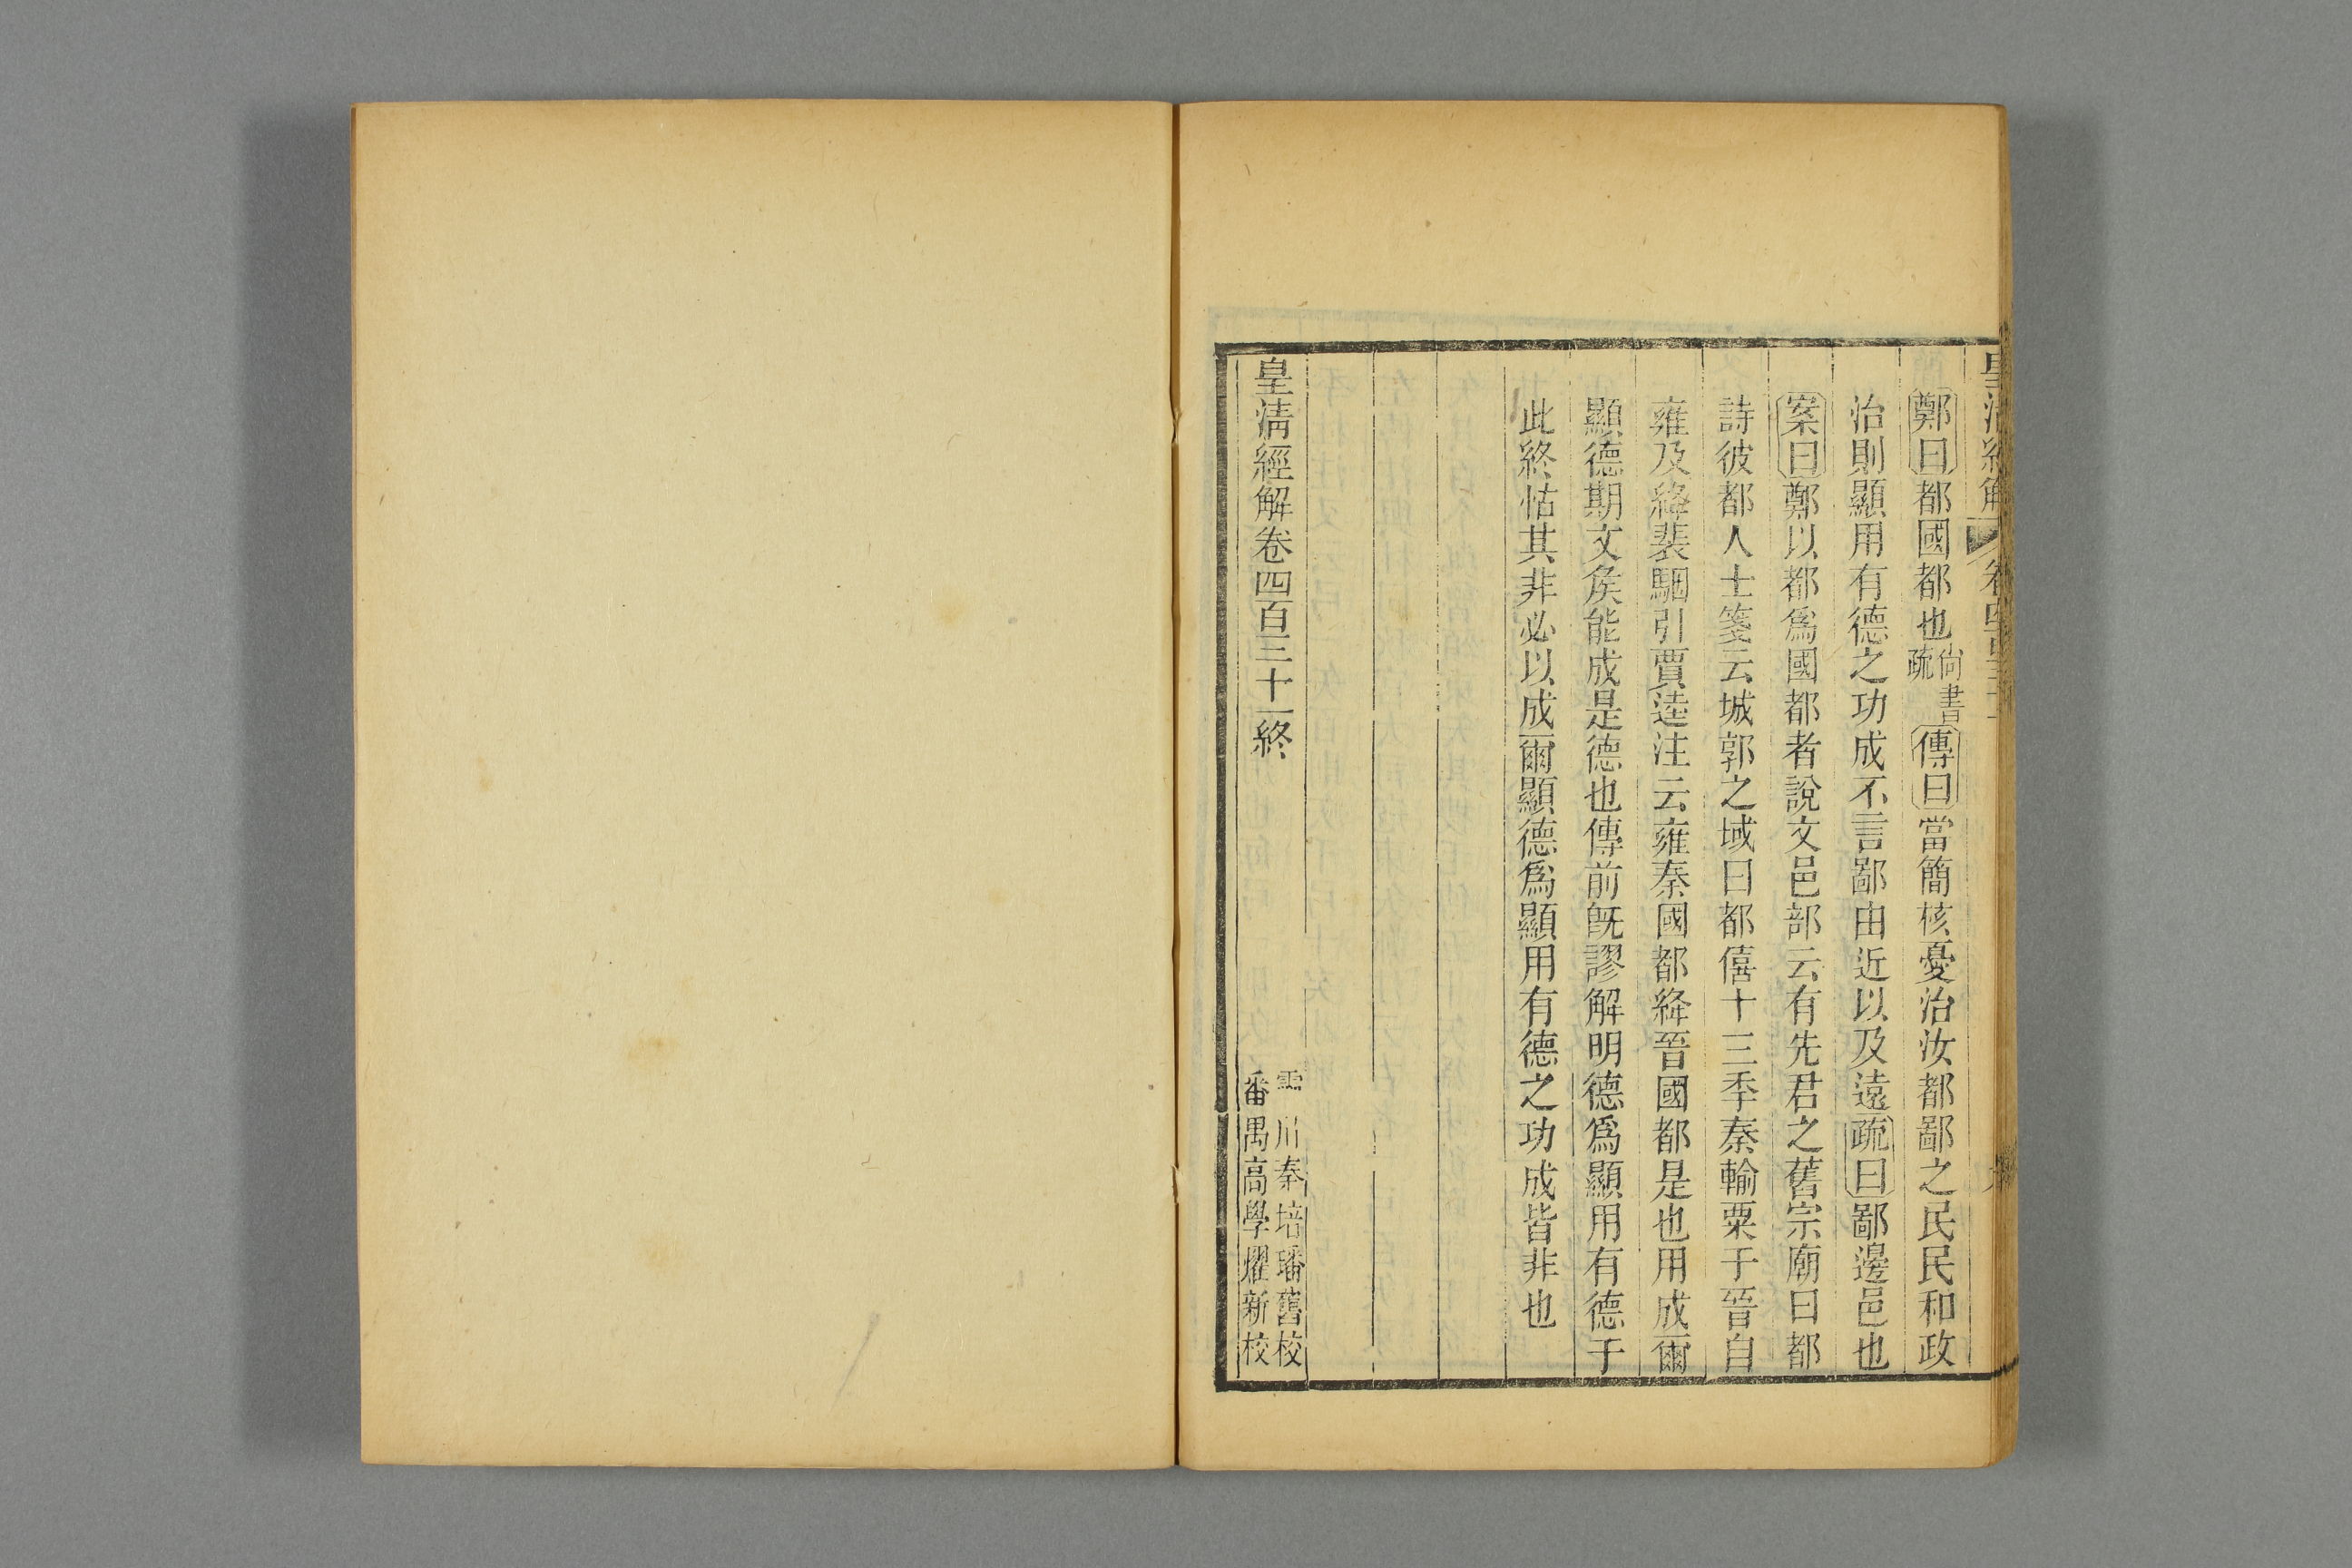 皇清經解 卷四百三十一
鄭曰都國都也尚書疏傳曰當簡核憂治汝都鄙之民民和政
治則顯用有德之功成不言鄙由近以及遠疏曰鄙邊邑也
案曰鄭以都爲國都者說文邑部云有先君之舊宗廟曰都
詩彼都人士箋云城郭之域曰都僖十三季秦輸粟于晉自
雍及絳裴駰引賈逵注云雍秦國都絳晉國都是也用成爾
顯德期文侯能成是德也傳前旣謬解明德爲顯用有德于
此終怙其非必以成爾顯德爲顯用有德之功成皆非也
皇清經解卷四百三十一終
川秦培璠舊校
番禺高學燿新校